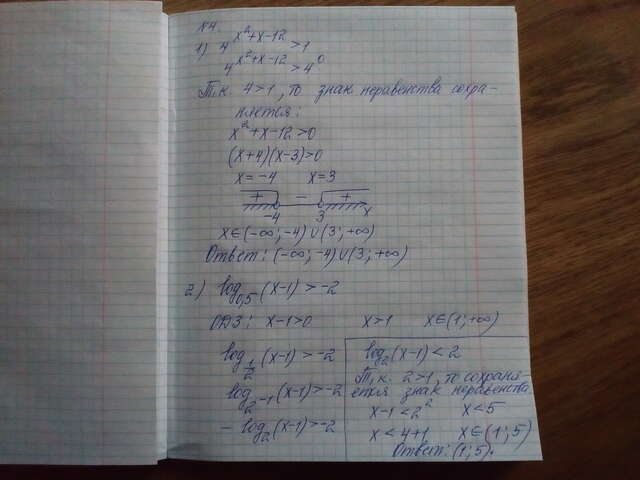 №4.
1) 4^(x²+x-12) > 1
4^(x²+x-12) > 4^0
Т.к. 4>1, то знак неравенства сохра-
няется:
x²+x-12>0
(x+4)(x-3)>0
x=-4 x=3
+ - +
-4 3 x
x∈(-∞;-4)∪(3;+∞)
Ответ: (-∞;-4)∪(3;+∞)
2) log_0,5 (x-1) > -2
ОДЗ: x-1>0 x>1 x∈(1;+∞)
log_(1/2) (x-1) > -2
log_(2^-1) (x-1) > -2
- log_2 (x-1) > -2
log_2 (x-1) < 2
Т.к. 2>1, то сохраня
ется знак неравенства
x-1<2² x<5
x<4+1 x∈(1;5)
Ответ: (1;5).